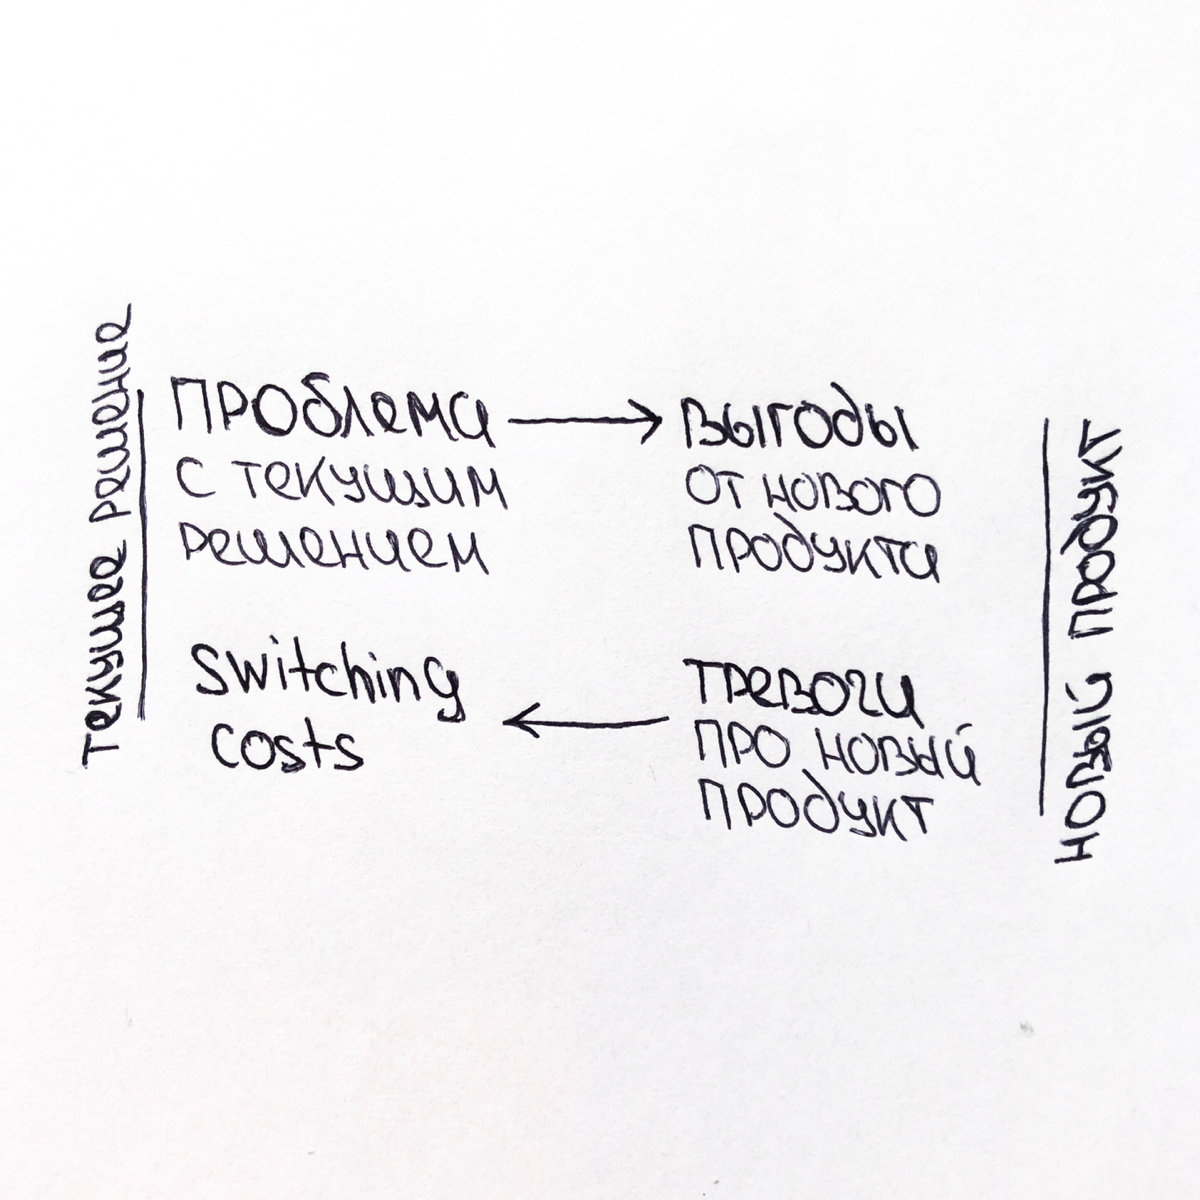 текущее решение
проблема
с текущим
решением
switching
costs
выгоды
от нового
продукта
тревоги
про новый
продукт
новый продукт